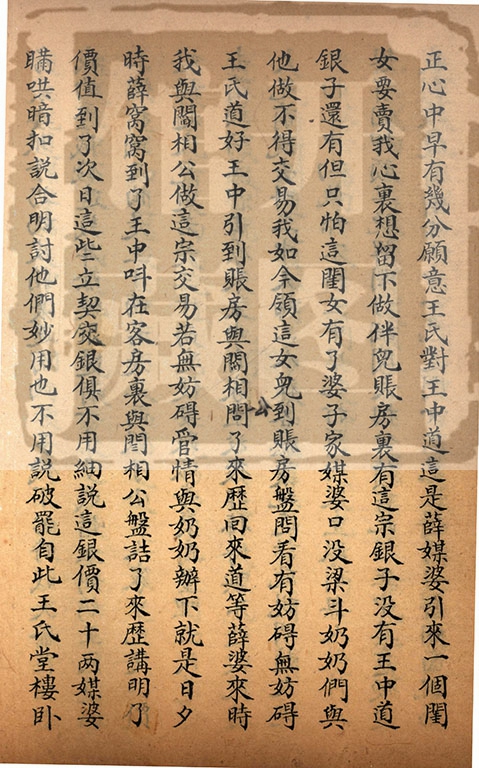 正心中早有幾分願意王氏對王中道這是薛媒婆引來一個閨
女要賣我心裏想留下做伴兒賬房裏有這宗銀子没有王中道
銀子還有但只怕這閨女有了婆子家媒婆口没梁斗奶奶們與
他做不得交易我如今領這女兒到賬房盤問看有妨碍無妨碍
王氏道好王中引到賬房與閻相公問了來歷回來道等薛婆來時
我與閻相公做這宗交易若無妨碍管情與奶奶辦下就是日夕
時薛窩窩到了王中呌在客房裏與閻相公盤詰了來歷講明了
價值到了次日這些立契交銀俱不用細說這銀價二十两媒婆
瞞哄暗扣説合明討他們妙用也不用説破罷自此王氏堂樓卧